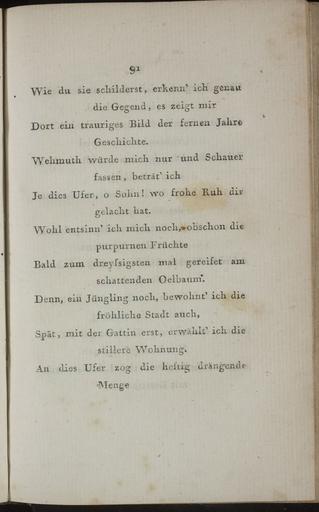 91
Wie du sie schilderst, erkenn' ich genau
die Gegend, es zeigt mir
Dort ein trauriges Bild der fernen Jahre
Geschichte.
Wehmuth würde mich nur und Schauer
fassen, beträt' ich
Je dies Ufer, o Sohn! wo frohe Ruh dir
gelacht hat.
Wohl entsinn' ich mich noch, obschon die
purpurnen Früchte
Bald zum dreyfsigsten mal gereifet am
schattenden Oelbaum.
Denn, ein Jüngling noch, bewohnt' ich die
fröhliche Stadt auch,
Spät, mit der Gattin erst, erwählt' ich die
stillere Wohnung.
An dies Ufer zog die heftig drängende
Menge